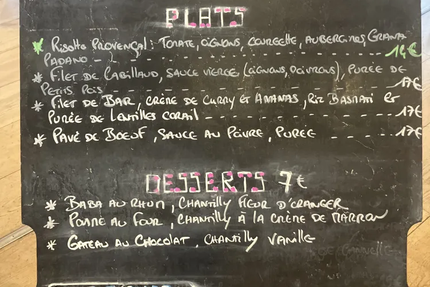 PLATS
* Risotto Provençal : Tomate, oignons, courgette, aubergines, Grana
Padano - - - - - - 14€
* Filet de Cabillaud, sauce vierge (oignons, poivrons), purée de
petits pois - - - - - - 17€
* Filet de Bar, crème de curry et ananas, riz Basmati et
purée de lentilles corail - - - - - - 17€
* Pavé de Boeuf, sauce au poivre, purée - - - - - - 17€
DESSERTS 7€
* Baba au rhum, chantilly fleur d'oranger
* Poire au four, chantilly à la crème de marron
* Gateau au chocolat, chantilly vanille